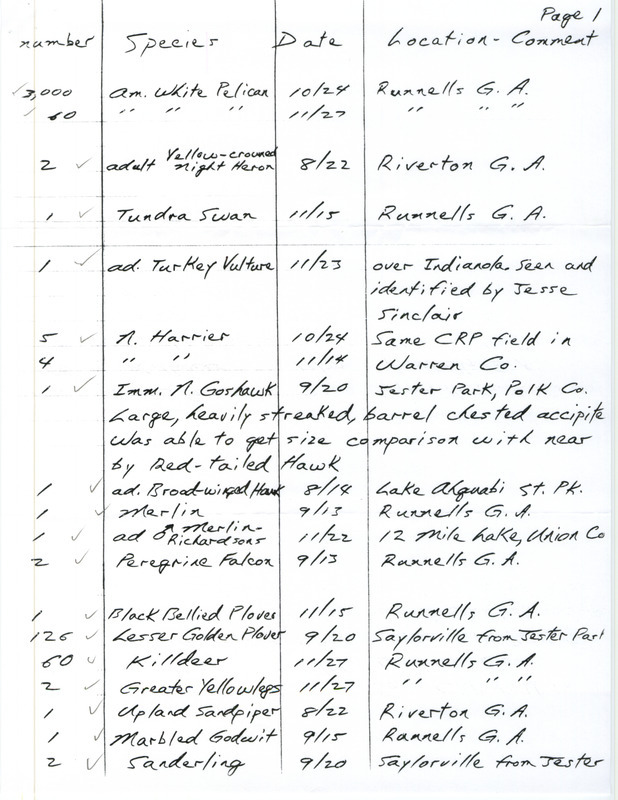 Page 1
number Species Date Location - Comment
3,000 am. White Pelican 10/24 Runnells G. A.
60 " " " 11/27 " " "
2 adult Yellow-crowned Night Heron 8/22 Riverton G. A.
1 Tundra Swan 11/15 Runnells G. A.
1 ad. Turkey Vulture 11/23 over Indianola. Seen and
identified by Jesse
Sinclair
5 N. Harrier 10/24 Same CRP field in
4 " " 11/14 Warren Co.
1 Imm. N. Goshawk 9/20 Jester Park, Polk Co.
Large, heavily streaked, barrel chested accipite
Was able to get size comparison with near
by Red-tailed Hawk
1 ad. Broad-winged Hawk 8/14 Lake Ahquabi St. Pk.
1 Merlin 9/13 Runnells G. A.
1 ad ♂ Merlin-Richardsons 11/22 12 Mile Lake, Union Co
2 Peregrine Falcon 9/13 Runnells G. A.
1 Black Bellied Plover 11/15 Runnells G. A.
126 Lesser Golden Plover 9/20 Saylorville from Jester Park
60 Killdeer 11/27 Runnells G. A.
2 Greater Yellowlegs 11/27 " " "
1 Upland Sandpiper 8/22 Riverton G. A.
1 Marbled Godwit 9/15 Runnells G. A.
2 Sanderling 9/20 Saylorville from Jester